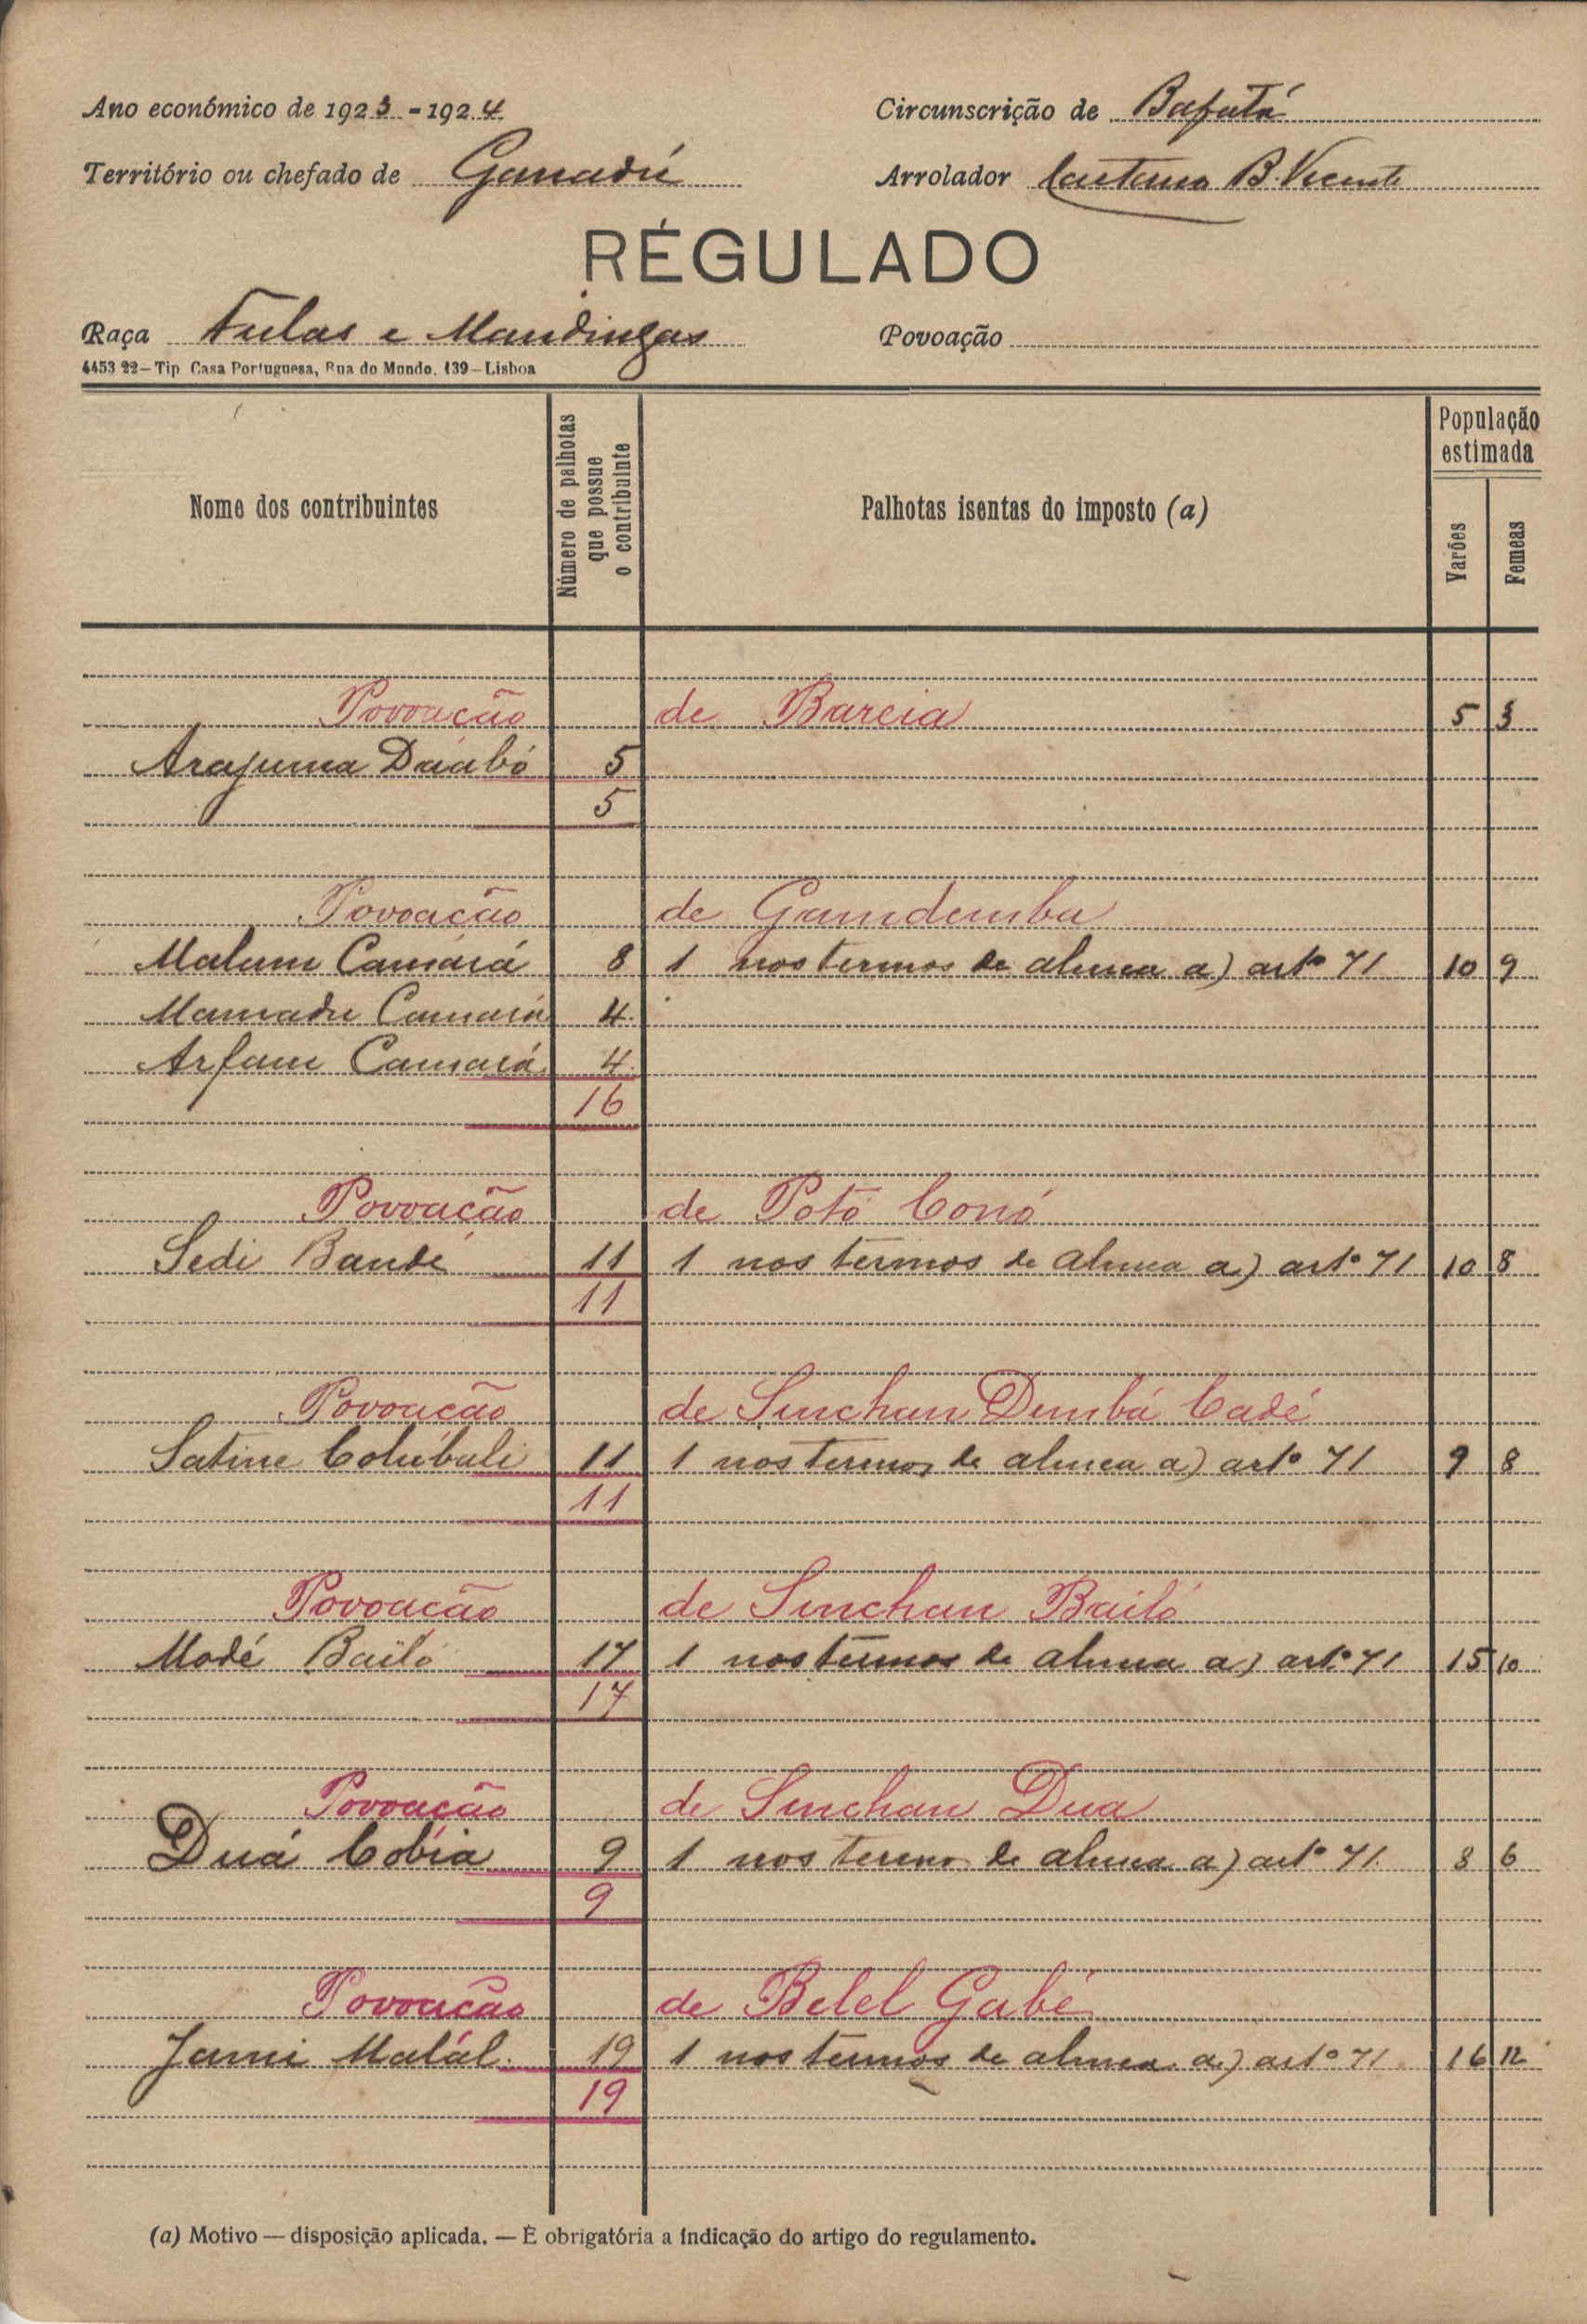 Ano económico de 1923-1924
Circunscrição de Bafatá
Território ou chefado de Ganadú
Arrolador Caetano B. Vicente
RÉGULADO
Raça Fulas e Mandingas
Povoação
4453 22—Tip Casa Portuguesa, Rua do Mundo, 139—Lisboa
Nome dos contribuintes
Número de palhotas que possue o contribuinte
Palhotas isentas do imposto (a)
População estimada
Varões
Femeas
Povoação de Bareia 5 3
Arajuma Daabó 5
5
Povoação de Gamdemba
Malam Camará 8 1 nos termos de alinea a) artº 71 10 9
Mamadu Camará 4
Arfam Camará 4
16
Povoação de Potó Conó
Sedi Bandé 11 1 nos termos de alinea a) artº 71 10 8
11
Povoação de Sinchan Dembá Cadé
Satine Colubali 11 1 nos termos de alinea a) artº 71 9 8
11
Povoação de Sinchan Bailó
Modé Bailó 17 1 nos termos de alinea a) artº 71 15 10
17
Povoação de Sinchan Dua
Duá Cobia 9 1 nos termo de alinea a) artº 71 8 6
9
Povoação de Belel Gabé
Jami Malál 19 1 nos termos de alinea a) artº 71 16 12
19
(a) Motivo — disposição aplicada. — É obrigatória a indicação do artigo do regulamento.